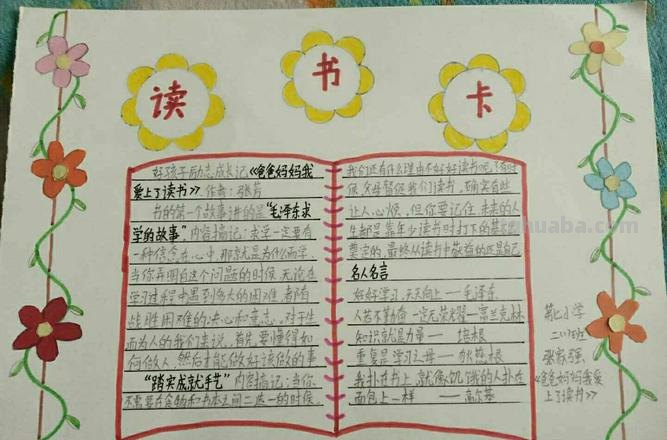 读 书 卡
好孩子励志成长记《爸爸妈妈我
爱上了读书》 作者：张芳
书的第一个故事讲的是“毛泽东求
学的故事”，内容摘记：求学一定要有
一种信念在心中，那就是为什么而学，
当你弄明白这个问题的时候，无论在
学习过程中遇到多大的困难，都有
战胜困难的决心和意志，对于生
而为人的我们来说，首先要懂得如
何做人，然后才能做好该做的事
“踏实成就手艺”内容摘记：当你
不需要在食物和书本之间二选一的时候，
我们还有什么理由不好好读书呢？有时
候，父母督促我们读书，确实有些
让人心烦，但你要记住，未来的人
生都是靠年少读书时打下的基础
奠定的，最终从读书中获益的还是自己
名人名言
好好学习，天天向上——毛泽东
人若不勤奋 一定无荣耀——高兰克林
知识就是力量—— 培根
重复是学习之母——狄慈根
我扑在书上，就像饥饿的人扑在
面包上一样 ——高尔基
小学
《爸爸妈妈我爱
上了读书》
huaba.com